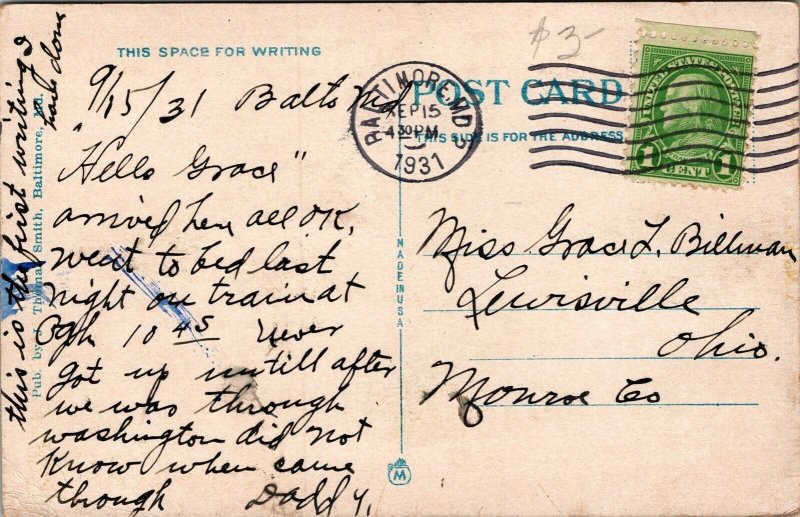 THIS SPACE FOR WRITING
9/15/31 Balto Md
"Hello Grace"
arrived here all OK,
went to bed last
night on train at
10 45 never
got up untill after
we was through
washington did not
know when came
through Daddy.
this is the first writing I
have done
Pub. by J. Thomas Smith, Baltimore, Md.
MADE IN USA
M
$3-
POST CARD
THIS SIDE IS FOR THE ADDRESS
BALTIMORE, MD.
SEP 15
4 30 PM
1931
UNITED STATES POSTAGE
1 CENT 1
Miss Grace L. Billman
Lewisville
Ohio.
Monroe Co